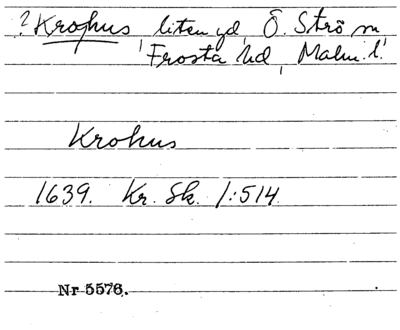 ? Krohus, liten gd, Ö. Strö sn,
Frosta hd, Malm. l.
Krohus
1639. Kr. Sk. 1:514
Nr 5576.